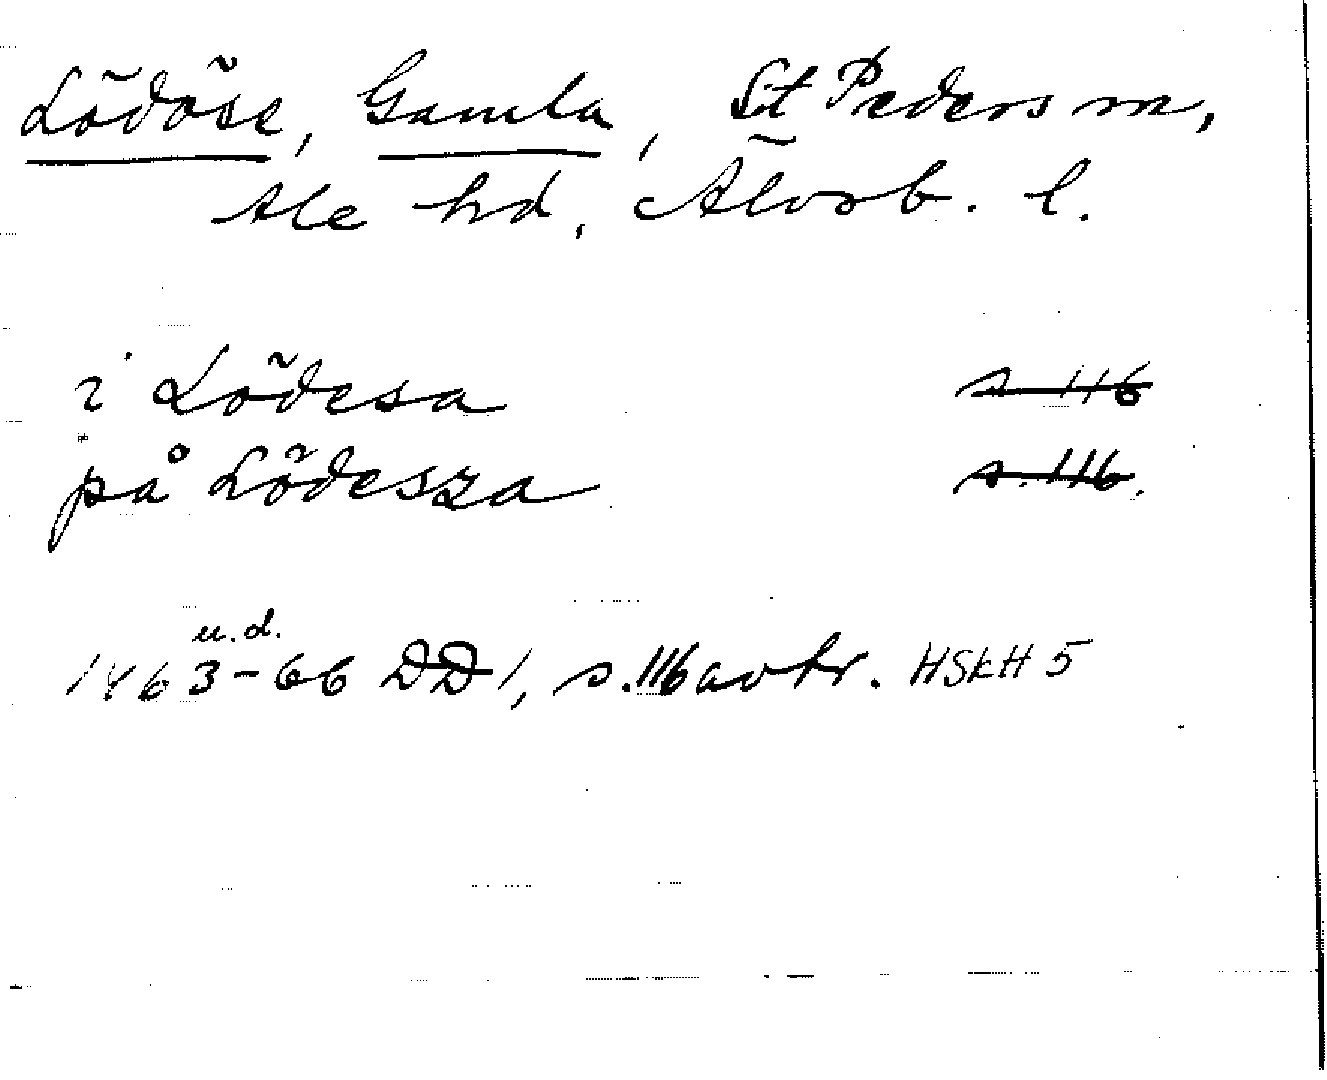 Lödöse, Gamla, St Peders sn,
Ale hd, Älvsb. l.
i Lödesa s 116
på Lödesza s. 116.
u.d.
1463-66 DD 1, s. 116 avkr. HSkH 5